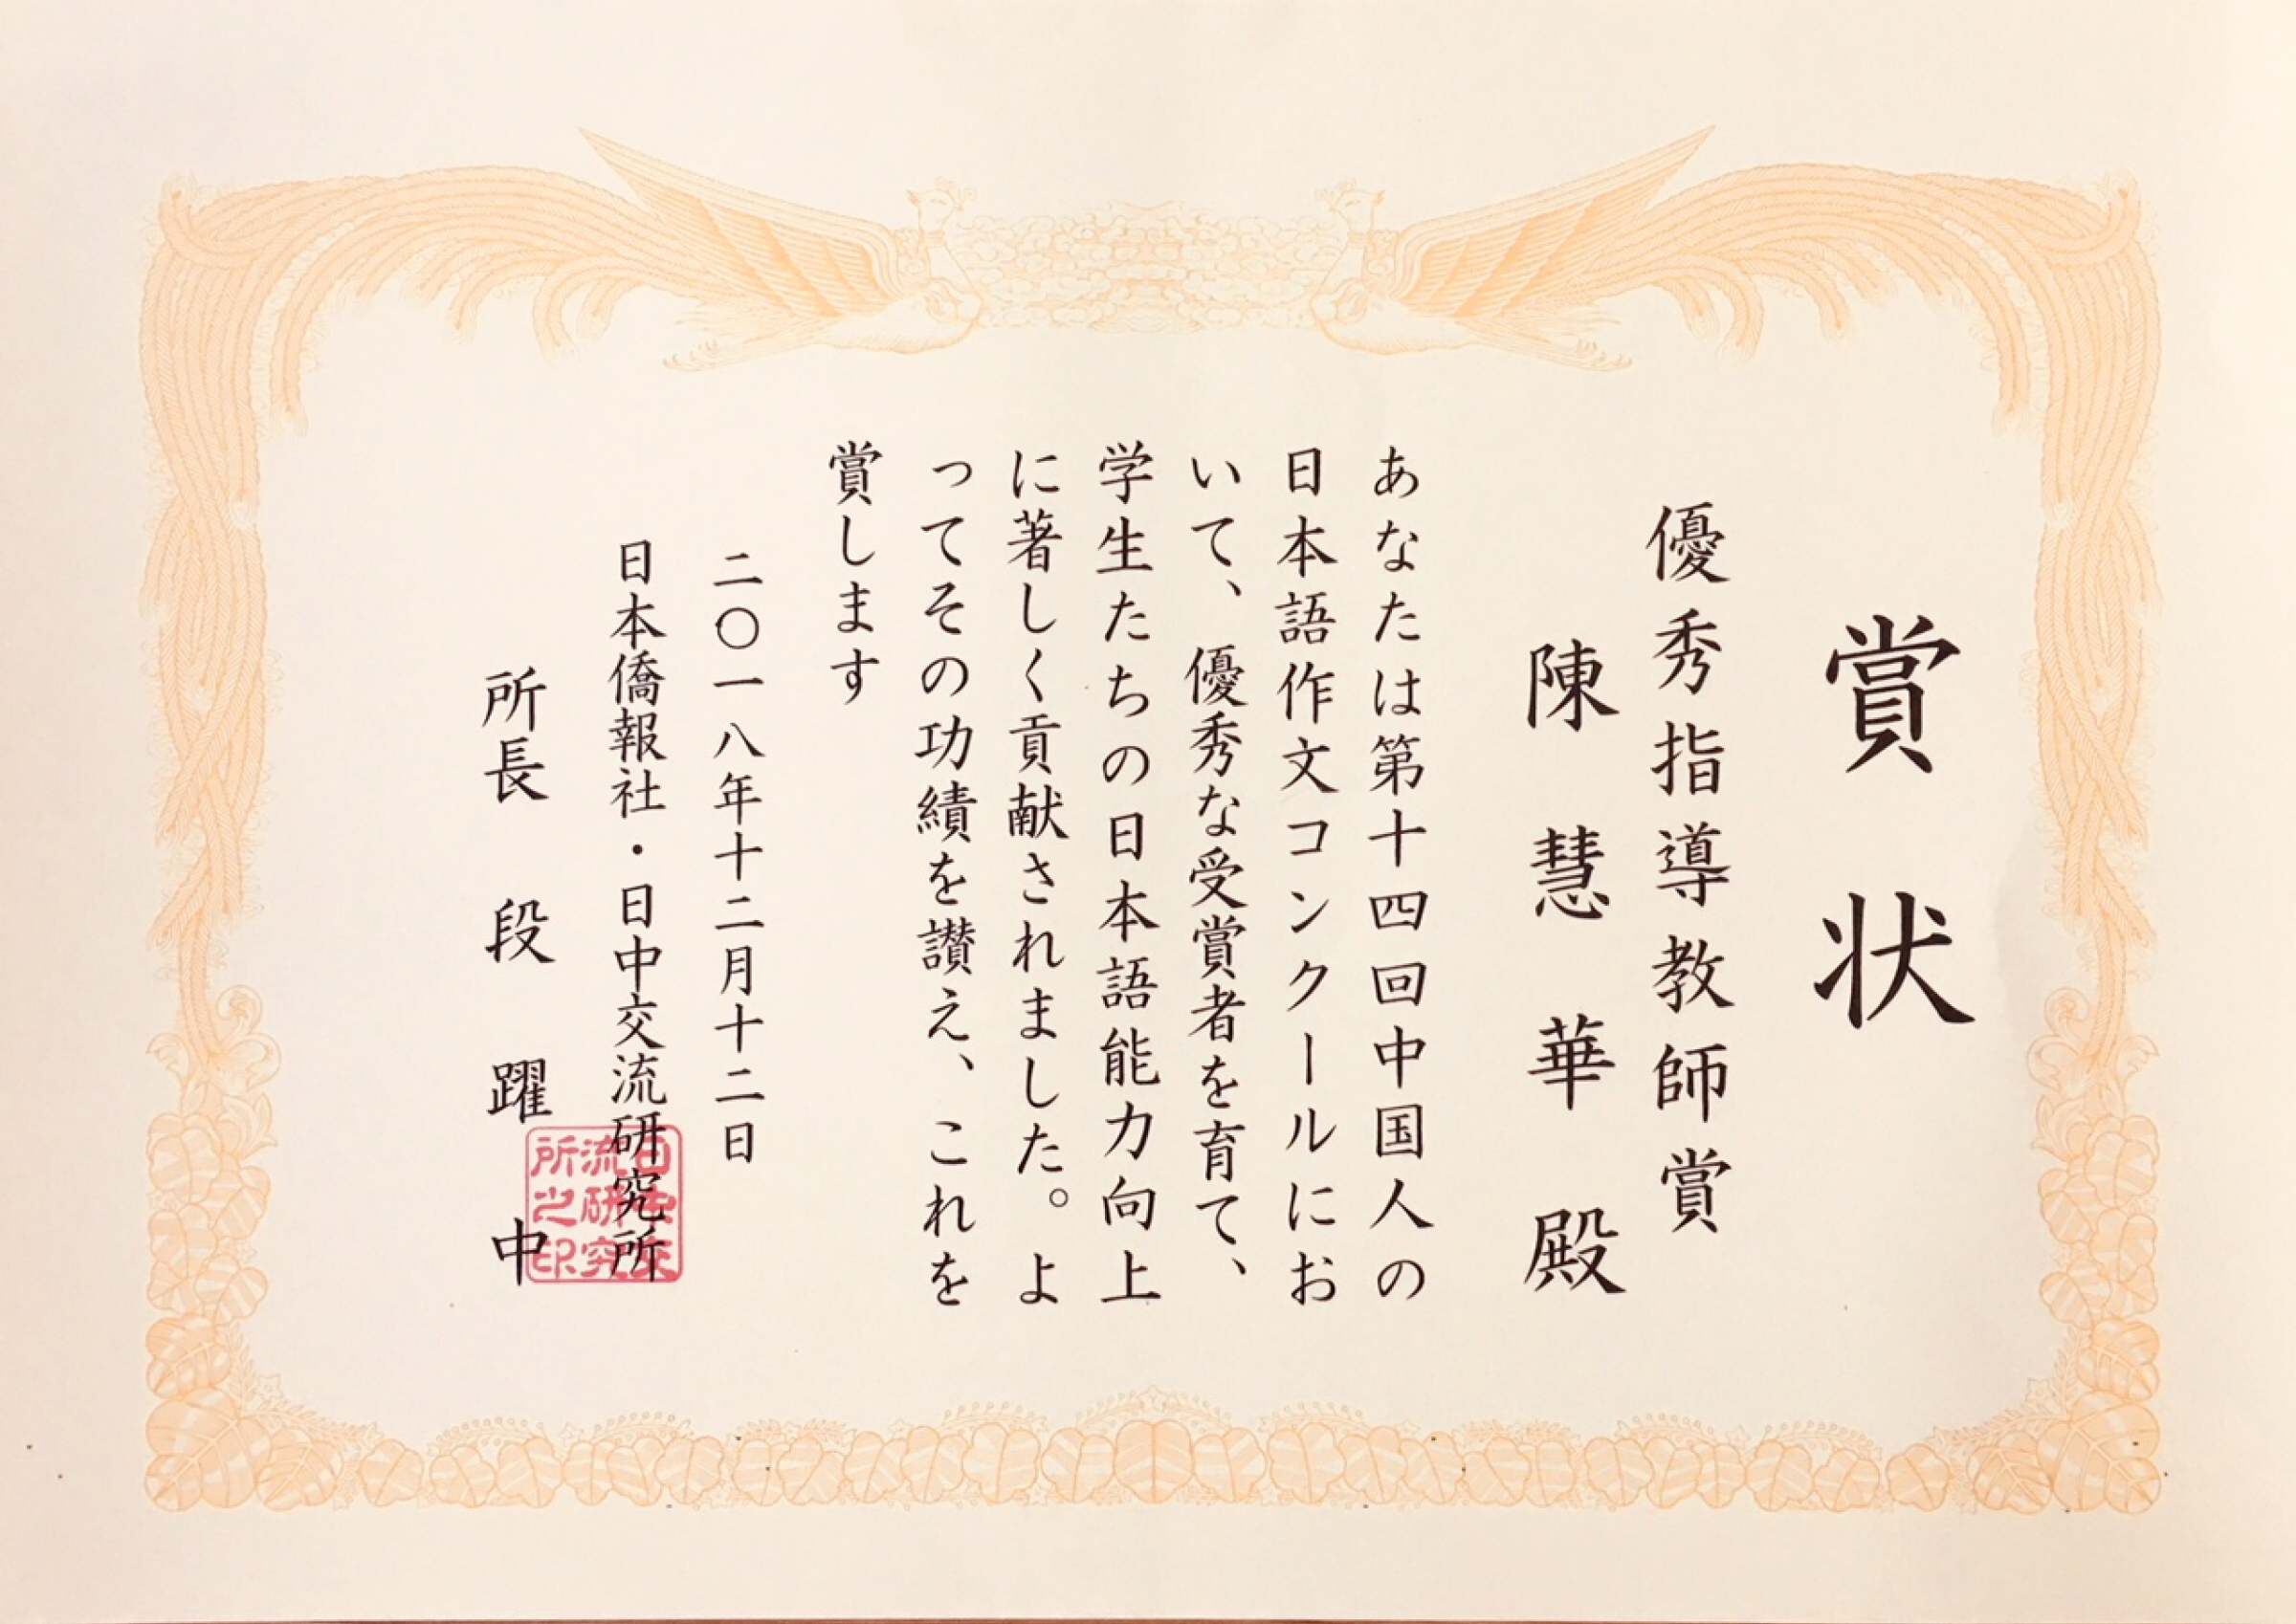 賞状
優秀指導教師賞
陳慧華殿
あなたは第十四回中国人の
日本語作文コンクールにお
いて、優秀な受賞者を育て、
学生たちの日本語能力向上
に著しく貢献されました。よ
ってその功績を讃え、これを
賞します
二〇一八年十二月十二日
日本僑報社・日中交流研究所
所長 段躍中
流研究
所之印